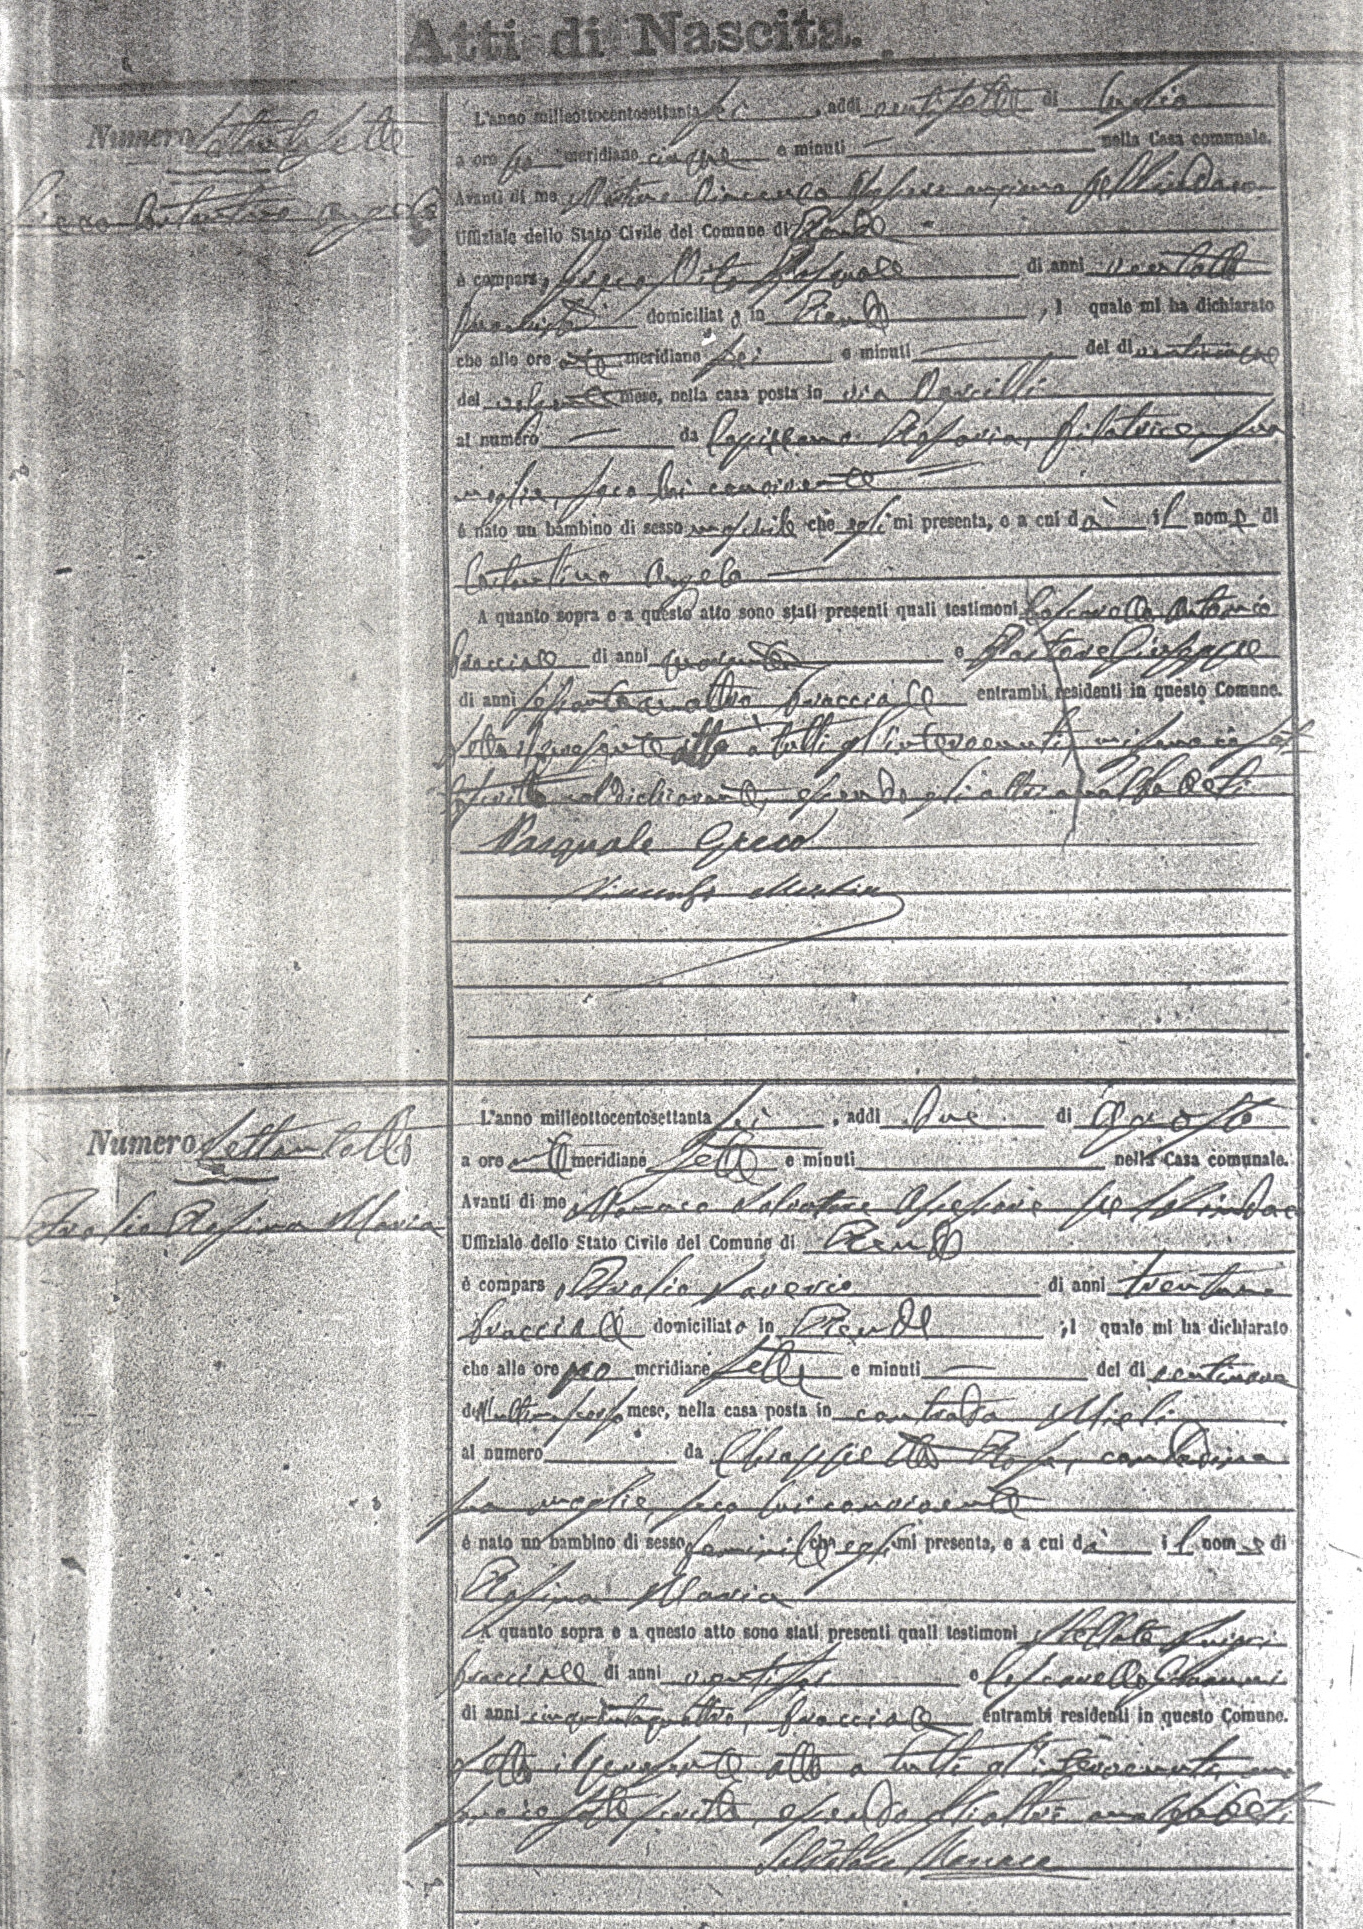 Atti di Nascita.
Numero settantasette
Greco Costantino Angelo
L'anno milleottocentosettanta sei, addì ventisette di luglio
a ore po meridiane cinque e minuti — nella Casa comunale.
Avanti di me Vincenzo Assessore anziano pel Sindaco
Uffiziale dello Stato Civile del Comune di Rende
è compars o Greco Vito Pasquale di anni ventotto
domiciliato in Rende, l quale mi ha dichiarato
che alle ore meridiane sei e minuti — del dì
del volgente mese, nella casa posta in via
al numero — da Rosaria, filatrice, sua
moglie, seco lui convivente
è nato un bambino di sesso maschile che egli mi presenta, e a cui dà il nome di
Costantino Angelo
A quanto sopra e a questo atto sono stati presenti quali testimoni Antonio
bracciale di anni e Pastore Giuseppe
di anni sessantaquattro bracciale entrambi residenti in questo Comune.
Letto il presente atto a tutti gl'intervenuti,
col dichiarante, essendo gli altri analfabeti
Pasquale Greco
Numero settantotto
Rosina Maria
L'anno milleottocentosettanta sei, addì due di Agosto
a ore anti meridiane sette e minuti nella Casa comunale.
Avanti di me Monaco Salvatore Assessore pel Sindaco
Uffiziale dello Stato Civile del Comune di Rende
è compars o Saverio di anni trentuno
bracciale domiciliato in Rende, l quale mi ha dichiarato
che alle ore po meridiane sette e minuti — del dì ventinove
dell'ultimo scorso mese, nella casa posta in contrada
al numero da Chiappetta Rosa, contadina
sua moglie, seco lui convivente
è nato un bambino di sesso feminile che egli mi presenta, e a cui dà il nome di
Rosina Maria
A quanto sopra e a questo atto sono stati presenti quali testimoni Luigi
bracciale di anni ventisei e Giovanni
di anni cinquantaquattro, bracciale entrambi residenti in questo Comune.
Letto il presente atto a tutti gl'intervenuti,
essendo gli altri analfabeti
Salvatore Monaco